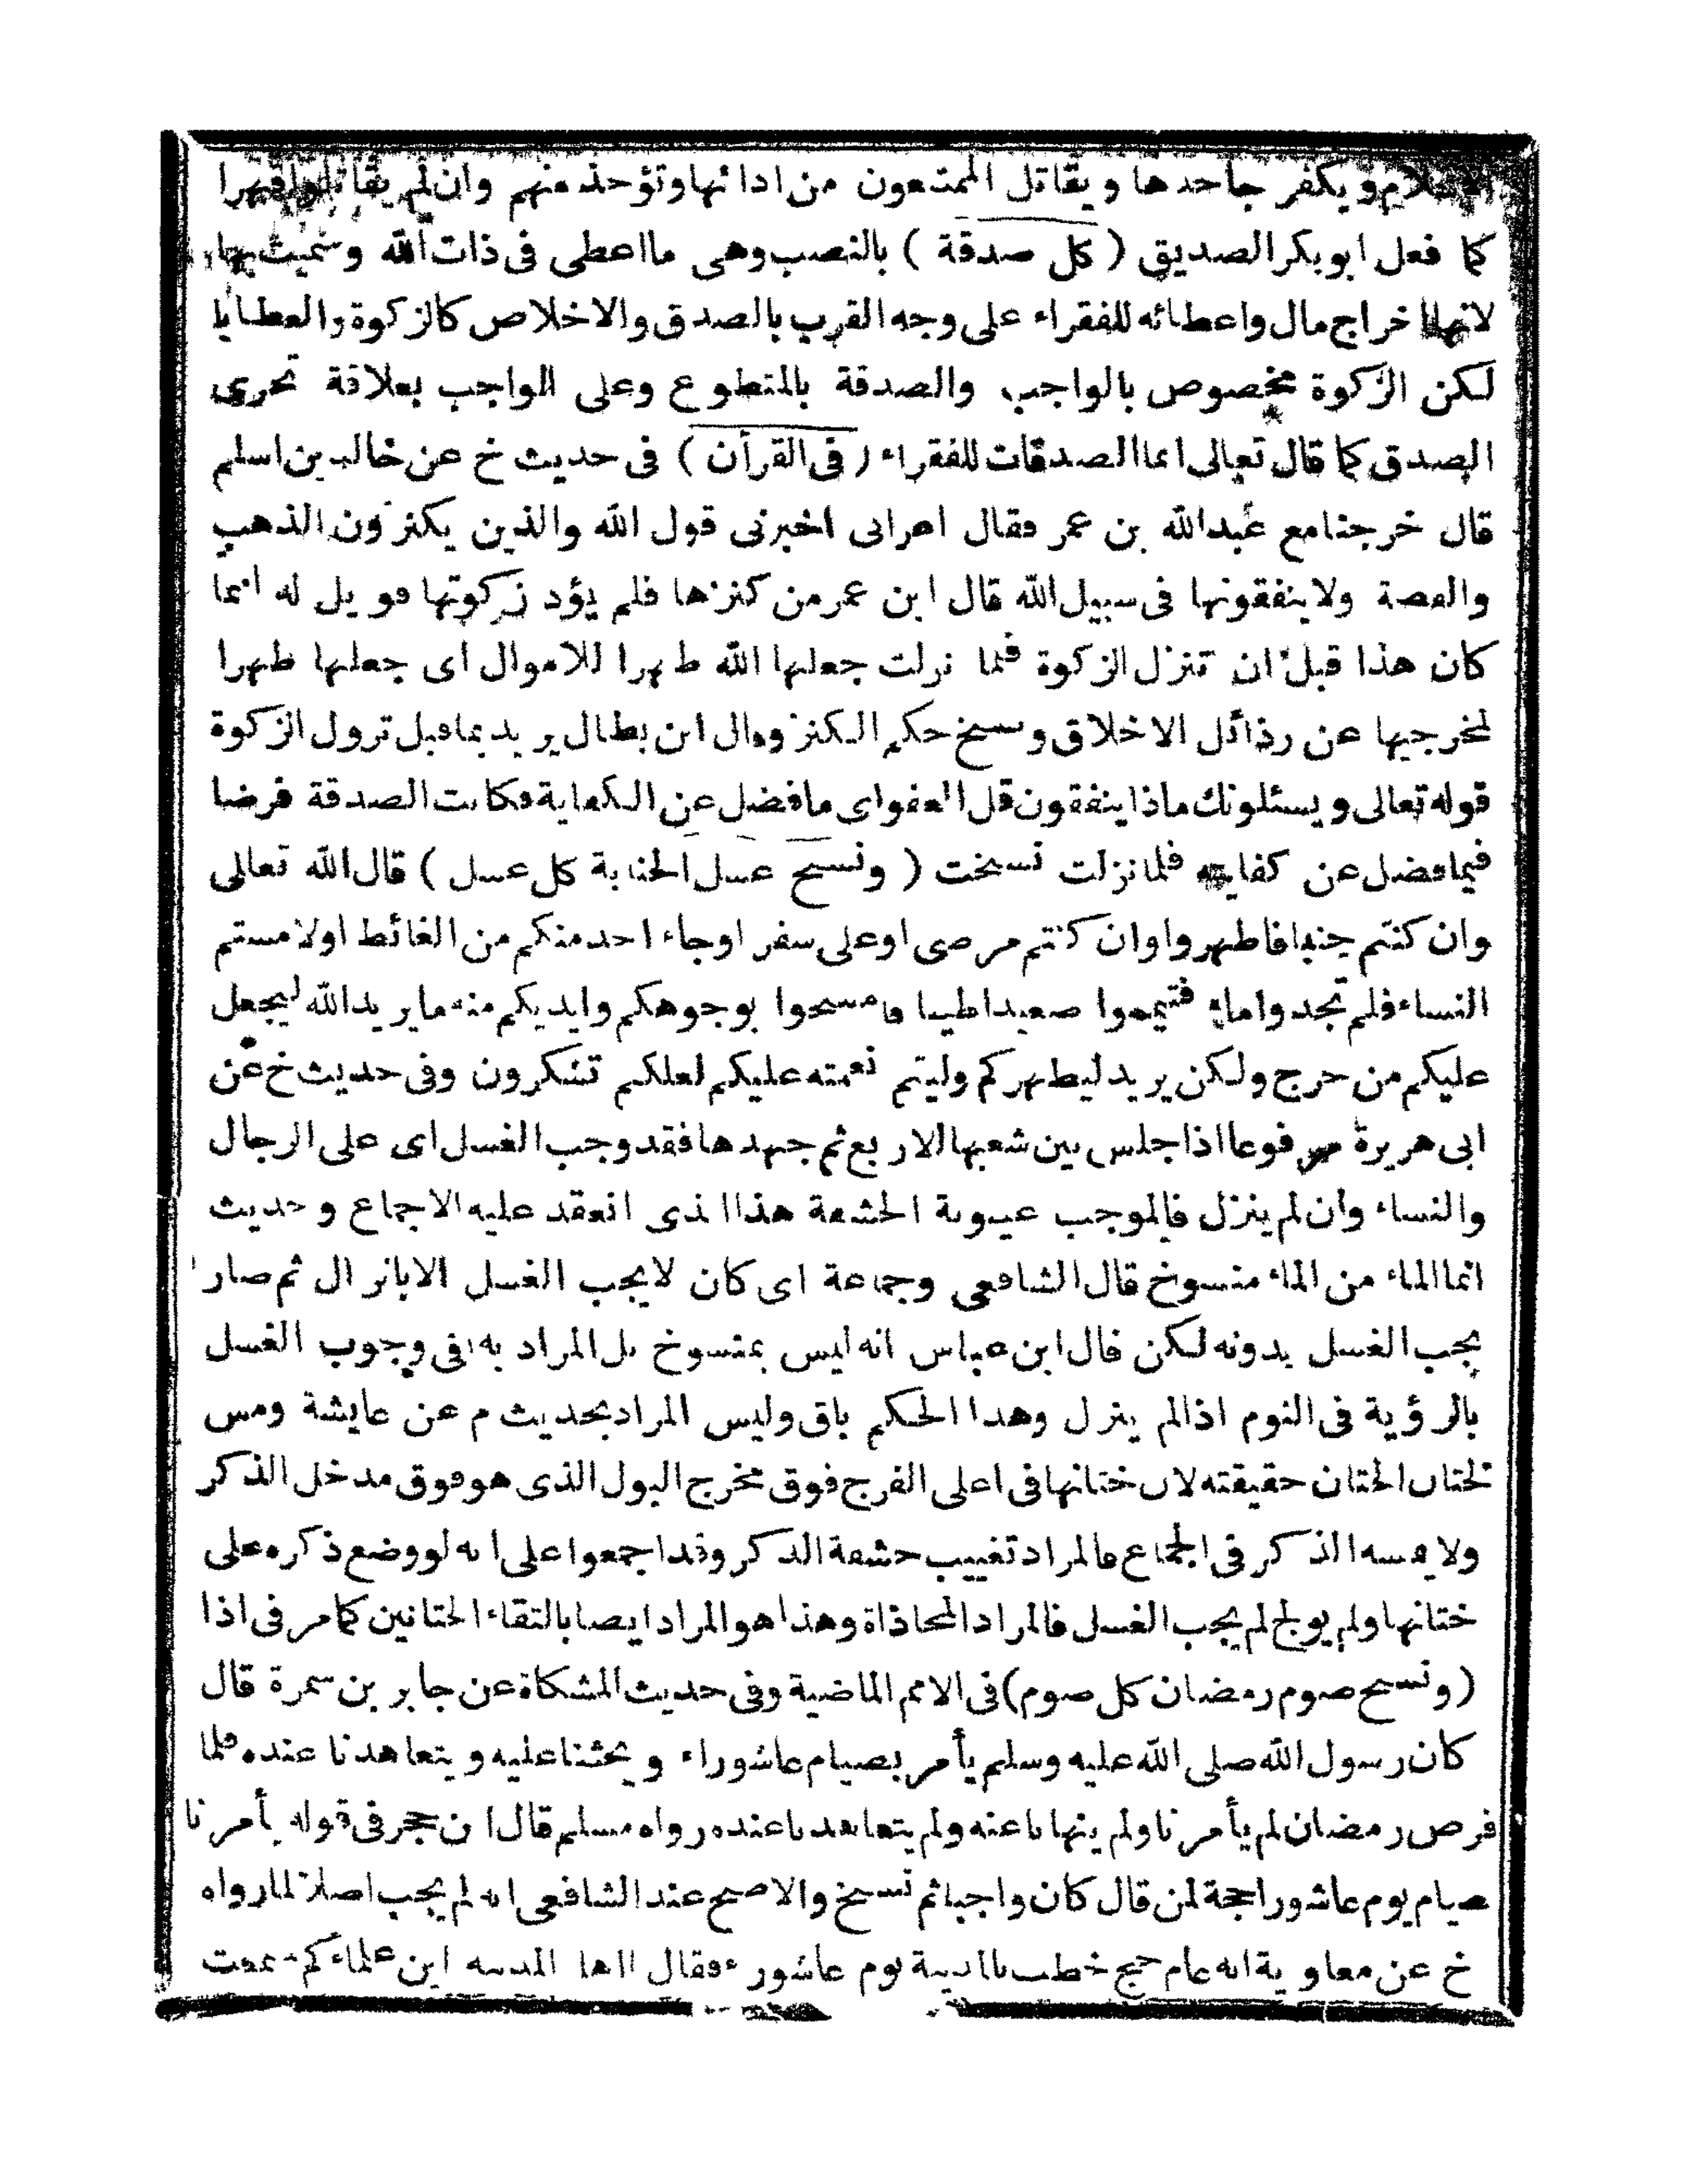 الاسلام ويكفر جاحدها ويقاتل الممتنعون من ادائها وتؤخذ منهم وان لم يقاتلوا قهرا
كما فعل ابو بكر الصديق (كل صدقة) بالنصب وهى ما اعطى فى ذات الله وسميت بها
لانها اخراج مال واعطائه للفقراء على وجه القرب بالصدق والاخلاص كالزكوة والعطايا
لكن الزكوة مخصوص بالواجب والصدقة بالمتطوع وعلى الواجب بعلاقة تحرى
الصدق كما قال تعالى انما الصدقات للفقراء (فى القرأن) فى حديث خ عن خالد بن اسلم
قال خرجنا مع عبدالله بن عمر فقال اعرابى اخبرنى قول الله والذين يكنزون الذهب
والفضة ولا ينفقونها فى سبيل الله قال ابن عمر من كنزها فلم يؤد زكوتها فويل له انما
كان هذا قبل ان تنزل الزكوة فلما نزلت جعلها الله طهرا للاموال اى جعلها طهرا
لمخرجيها عن رذائل الاخلاق ونسخ حكم الكنز وقال ابن بطال يريد بما قبل نزول الزكوة
قوله تعالى ويسئلونك ماذا ينفقون قل العفو اى ما فضل عن الكفاية فكانت الصدقة فرضا
فيما فضل عن كفايته فلما نزلت نسخت (ونسخ غسل الجنابة كل غسل) قال الله تعالى
وان كنتم جنبا فاطهروا وان كنتم مرضى او على سفر او جاء احد منكم من الغائط او لامستم
النساء فلم تجدوا ماء فتيمموا صعيدا طيبا فامسحوا بوجوهكم وايديكم منه ما يريد الله ليجعل
عليكم من حرج ولكن يريد ليطهركم وليتم نعمته عليكم لعلكم تشكرون وفى حديث خ عن
ابى هريرة مرفوعا اذا جلس بين شعبها الاربع ثم جهدها فقد وجب الغسل اى على الرجال
والنساء وان لم ينزل فالموجب غيبوبة الحشفة هذا الذى انعقد عليه الاجماع وحديث
انما الماء من الماء منسوخ قال الشافعى وجماعة اى كان لا يجب الغسل الا بانزال ثم صار
يجب الغسل بدونه لكن قال ابن عباس انه ليس بمنسوخ بل المراد به نفى وجوب الغسل
بالرؤية فى النوم اذا لم ينزل وهذا الحكم باق وليس المراد بحديث م عن عايشة ومس
لختان الختان حقيقته لان ختانها فى اعلى الفرج فوق مخرج البول الذى هو فوق مدخل الذكر
ولا يمسه الذكر فى الجماع فالمراد تغييب حشفة الذكر وقد اجمعوا على انه لو وضع ذكره على
ختانها ولم يولج لم يجب الغسل فالمراد المحاذاة وهذا هو المراد ايضا بالتقاء الختانين كما مر فى اذا
(ونسخ صوم رمضان كل صوم) فى الامم الماضية وفى حديث المشكاة عن جابر بن سمرة قال
كان رسول الله صلى الله عليه وسلم يأمر بصيام عاشوراء ويحثنا عليه ويتعاهدنا عنده فلما
فرض رمضان لم يأمرنا ولم ينهانا عنه ولم يتعاهدنا عنده رواه مسلم قال ابن حجر فى قوله يأمرنا
صيام يوم عاشورا حجة لمن قال كان واجبا ثم نسخ والاصح عند الشافعى انه لم يجب اصلا لما رواه
خ عن معاوية انه عام حج خطب بالمدينة يوم عاشور فقال المدينة اين علماءكم سمعت